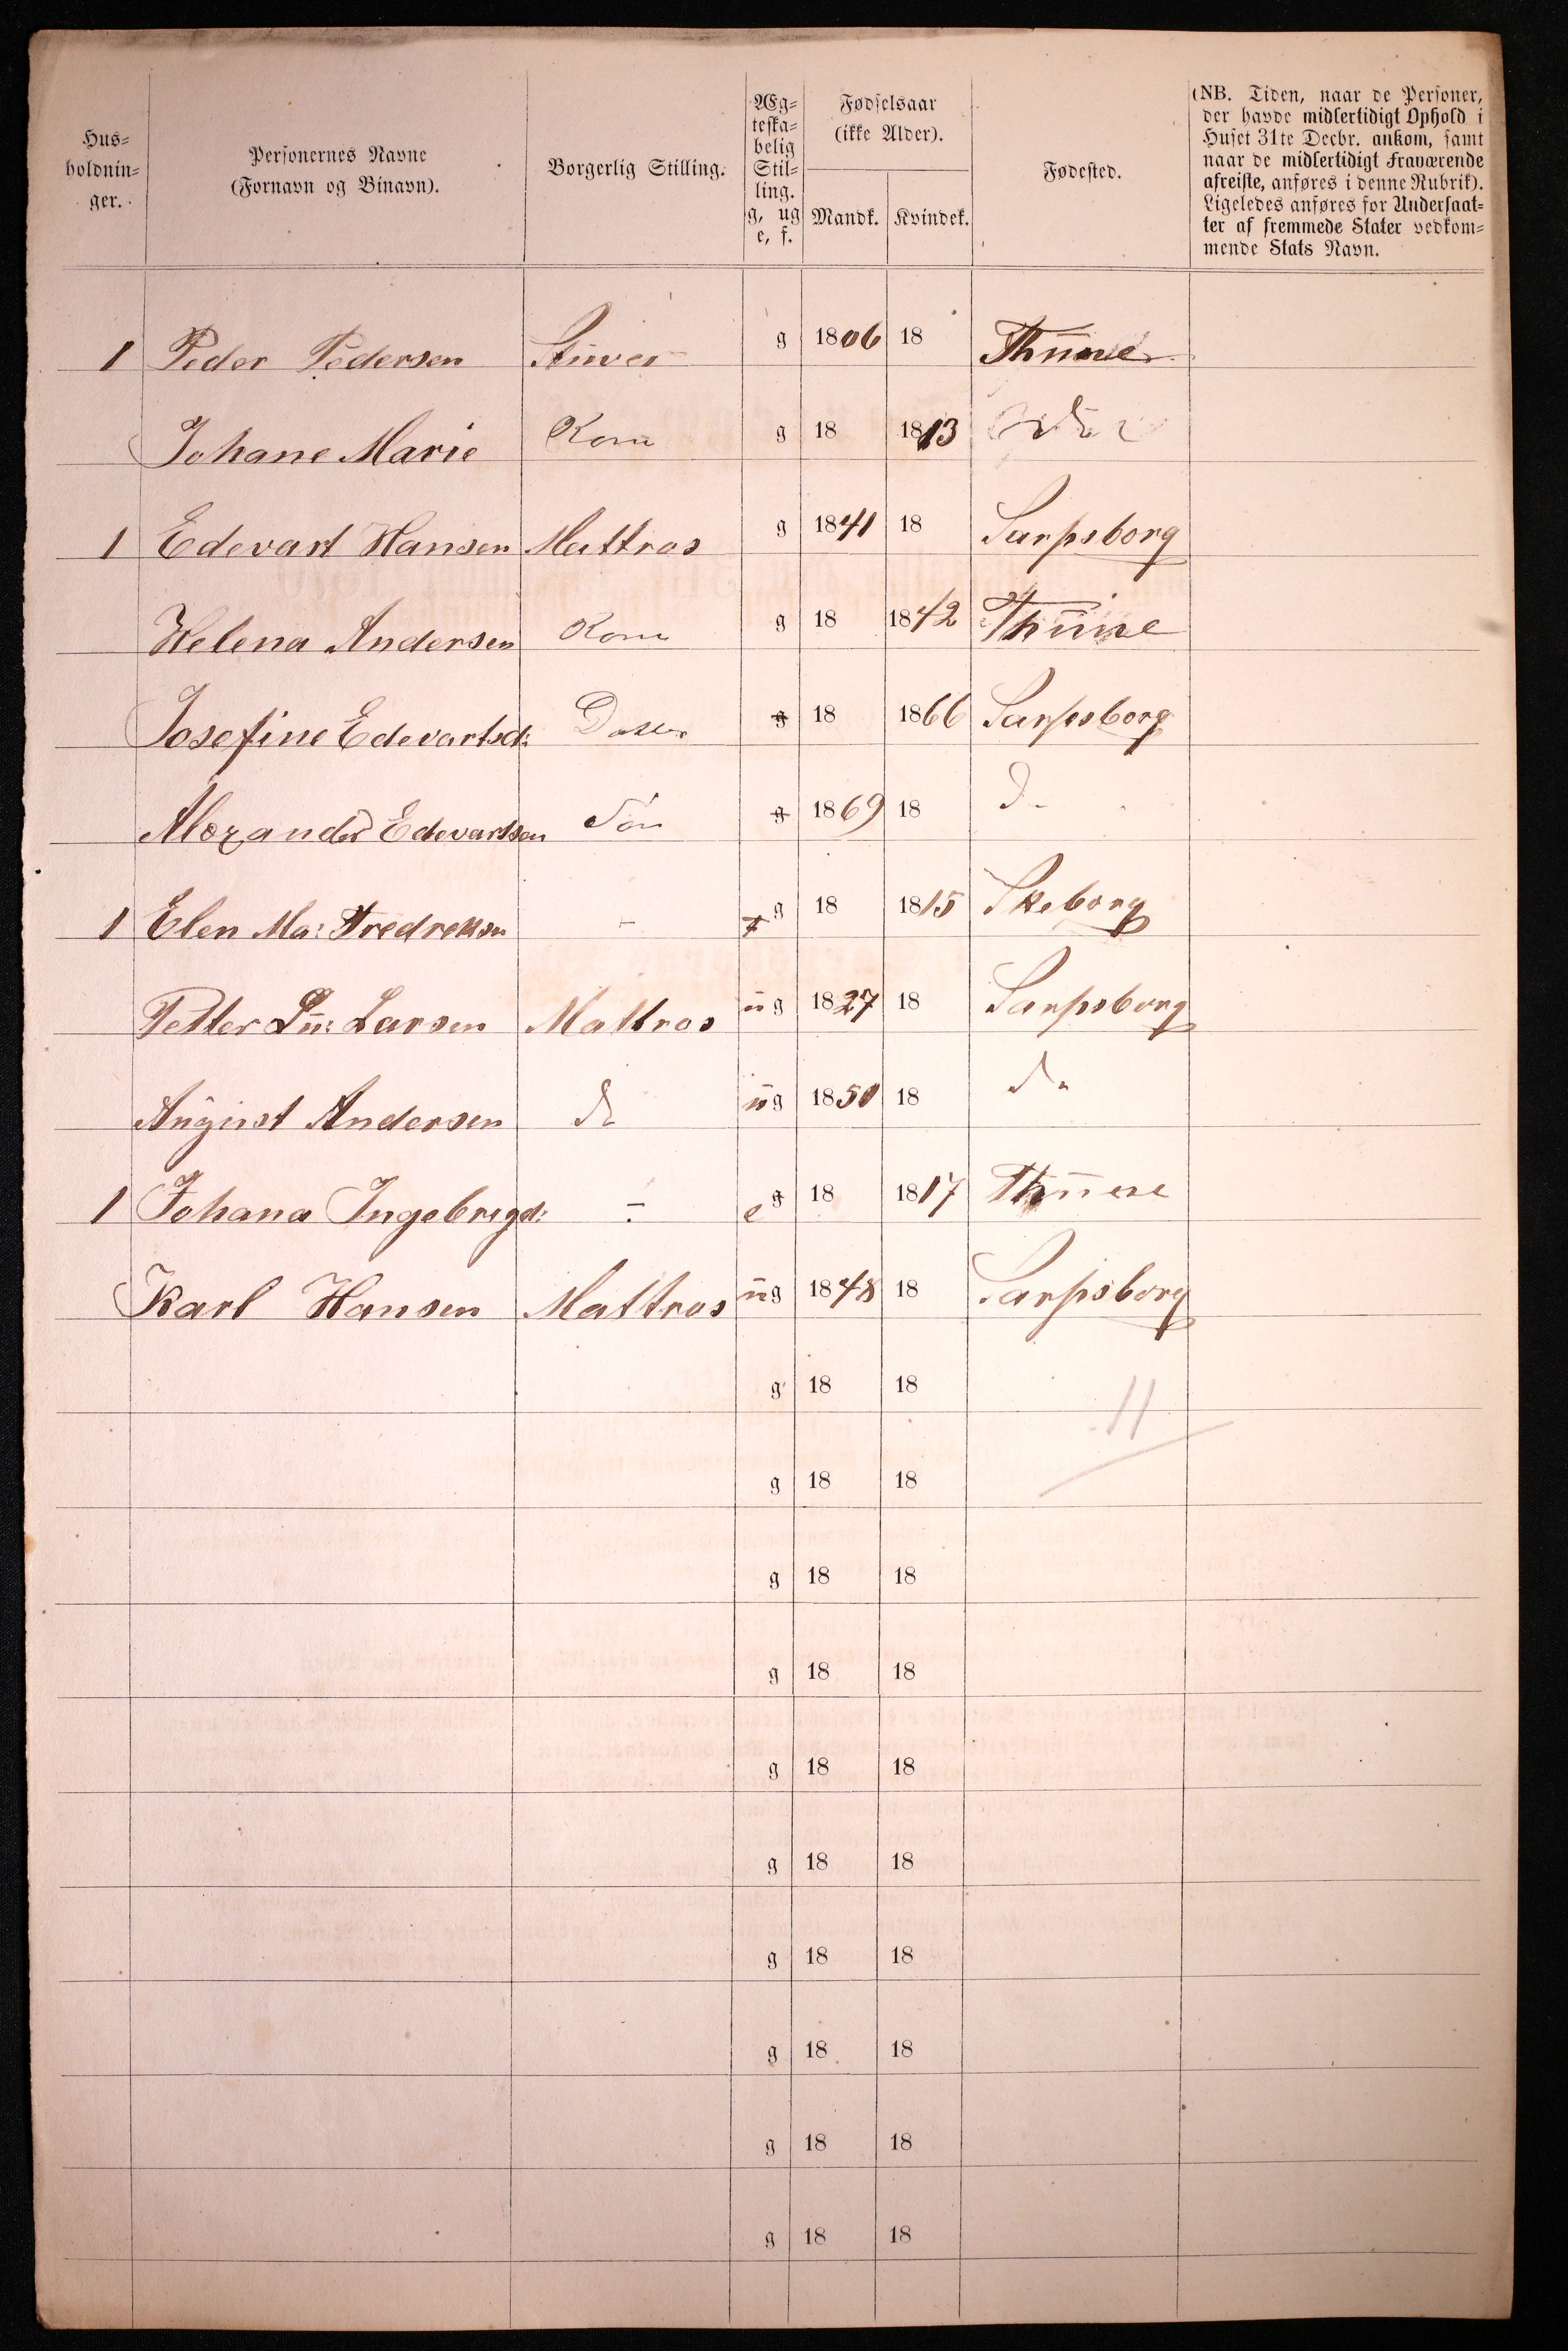 Hus-
holdnin-
ger.
Personernes Navne
(Fornavn og Binavn).
Borgerlig Stilling.
Æg-
teska-
belig
Stil-
ling.
g, ug
e, f.
Fødselsaar
(ikke Alder).
Mandk. Kvindek.
Fødested.
(NB. Tiden, naar de Personer,
der havde midlertidigt Ophold i
Huset 31te Decbr. ankom, samt
naar de midlertidigt Fraværende
afreiste, anføres i denne Rubrik).
Ligeledes anføres for Undersaat-
ter af fremmede Stater vedkom-
mende Stats Navn.
1 Peder Pedersen g 1806 18 Thune
Johane Marie Kone g 18 1813
1 Edevart Hansen Mattros g 1841 18 Sarpsborg
Helena Andersen Kone g 18 1842 Thune
Josefine Edevartsd: Datter g 18 1866 Sarpsborg
Alexander Edevartsen Søn g 1869 18 do
1 Elen Ma: Fredreksen - g 18 1815 Skeborg
Petter Lu: Larsen Mattros ug 1827 18 Sarpsborg
August Andersen do ug 1850 18 do
1 Johana Ingebrigd: - e g 18 1817 Thune
Karl Hansen Mattros ug 1848 18 Sarpsborg
g 18 18 11
g 18 18
g 18 18
g 18 18
g 18 18
g 18 18
g 18 18
g 18 18
g 18 18
g 18 18